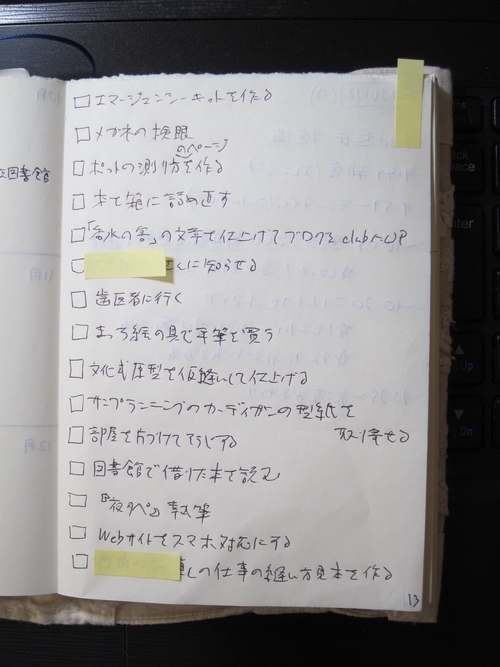 立図書館
□エマージェンシーキットを作る
□メガネの検眼
のページ
□ポットの測り方を作る
□本を箱に詰め直す
□「香水の害」の文章を仕上げてブログとclubにUP
□さんに知らせる
□歯医者に行く
□まっち絵の具で筆を買う
□文化式原型を仮縫いして仕上げる
□サンプランニングのカーディガンの型紙を
取り寄せる
□部屋を片づけてそうじする
□図書館で借りた本を読む
□『夜ノペ』執筆
□Webサイトをスマホ対応にする
□直しの仕事の縫い方見本を作る
13
12月